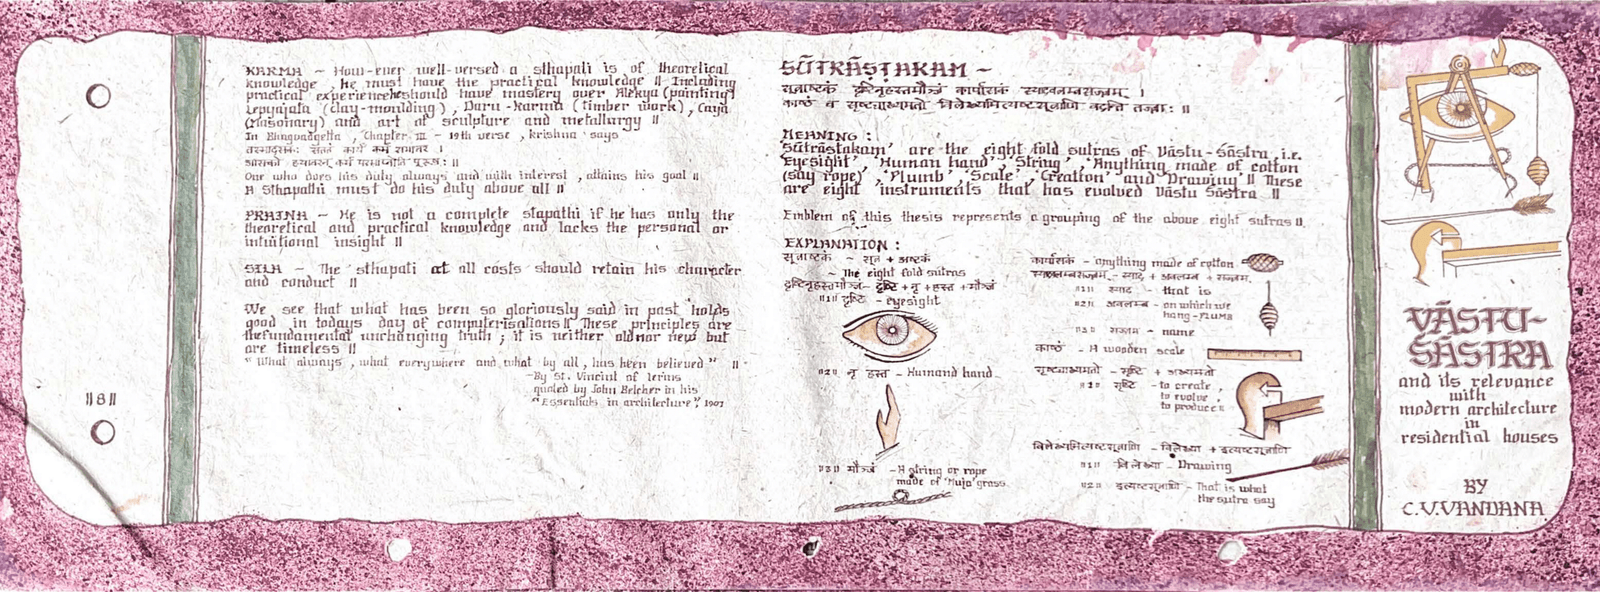 KARMA ~ How-ever well-versed a sthapati is of theoretical
knowledge, he must have the practical knowledge || Including
practical experience he should have mastery over Alekya (painting)
Lepyajata (clay-moulding), Daru-karma (timber work), Caya
(Masonary) and art of sculpture and metallurgy ||
In Bhagvadgetta, Chapter III - 19th verse, krishna says
कार्यं कर्म समाचर ।
One who does his duty always and with interest, attains his goal ||
A Sthapathi must do his duty above all ||
PRAJNA ~ He is not a complete stapathi if he has only the
theoretical and practical knowledge and lacks the personal or
intuitional insight ||
SILA ~ The sthapati at all costs should retain his character
and conduct ||
We see that what has been so gloriously said in past holds
good in todays day of computerisations || These principles are
the fundamental unchanging truth ; it is neither old nor new but
are timeless ||
"What always, what everywhere and what by all, has been believed" ||
-By St. Vincint of lerins
quoted by John Belcher in his
"Essentials in architecture", 1907
||8||
SŪTRĀSṬAKAM ~
सूत्राष्टकं दृष्टिनृहस्तमौञ्जं कार्पासकं स्यादवलम्बसज्ञम् ।
काष्ठं च सृष्ट्याख्यमतो विलेख्यमित्यष्टसूत्राणि वदन्ति तज्ज्ञाः ॥
MEANING :
Sūtrāstakam' are the eight fold sutras of Vāstu-Śāstra i.e.
'Eyesight', 'Human hand', 'String', 'Anything made of cotton
(say rope)', 'Plumb', 'Scale', 'Creation' and Drawing' || These
are eight instruments that has evolved Vāstu Śāstra ||
Emblem of this thesis represents a grouping of the above eight sutras ||.
EXPLANATION :
सूत्राष्टकं - सूत्र + अष्टकं
~ The eight fold sūtras
दृष्टिनृहस्तमौञ्जं - दृष्टि + नृ + हस्त + मौञ्जं
||1|| दृष्टि - eyesight
||2|| नृ हस्त - Humand hand
||3|| मौञ्जं - A string or rope
made of 'Muja' grass
कार्पासकं - anything made of cotton
स्यादवलम्बसज्ञम् - स्याद + अवलम्ब + सज्ञम्
||1|| स्याद - that is
||2|| अवलम्ब - on which we
hang - PLUMB
||3|| सज्ञम - name
काष्ठं - A wooden scale
सृष्ट्याख्यमतो - सृष्टि + अख्यमतो
||1|| सृष्टि - to create,
to evolve,
to produce ||
विलेख्यमित्यष्टसूत्राणि - विलेख्या + इत्यष्टसूत्राणि
||1|| विलेख्या - Drawing
||2|| इत्यष्टसूत्राणि - That is what
the sutra say
VĀSTU-
ŚĀSTRA
and its relevance
with
modern architecture
in
residential houses
BY
C.V.VANDANA